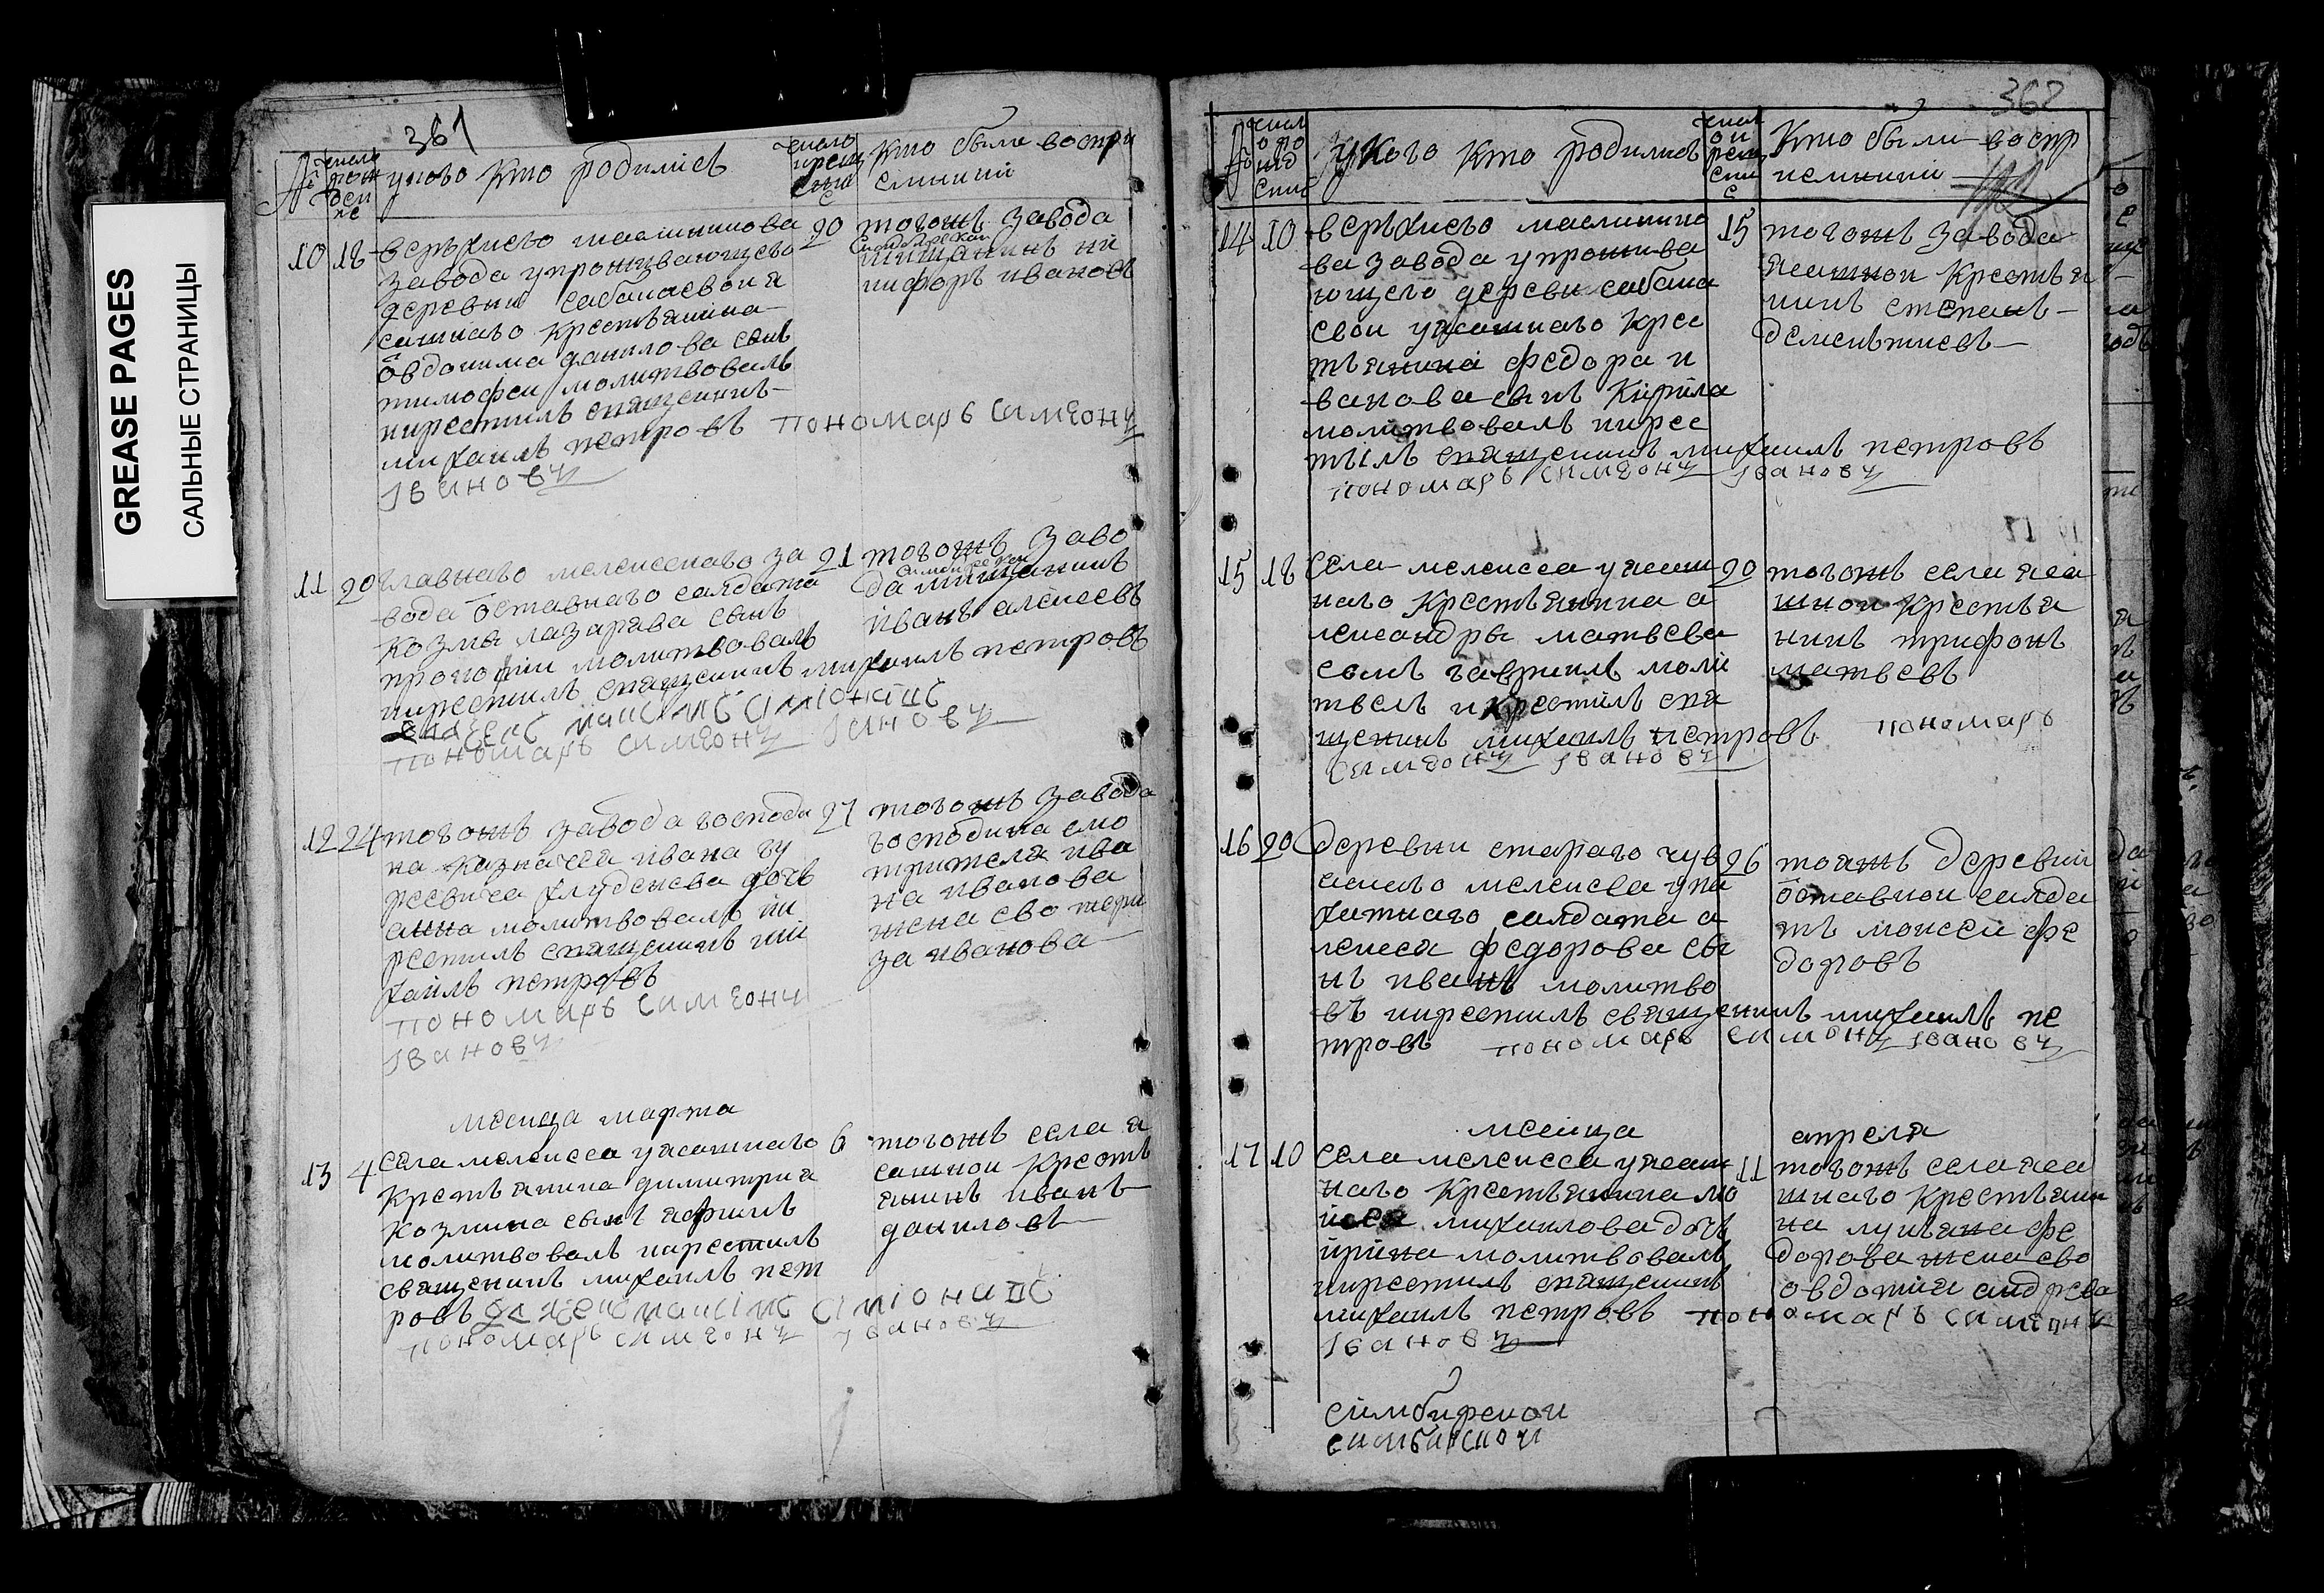 GREASE PAGES
САЛЬНЫЕ СТРАНИЦЫ
361
№ число рож дени
укого Кто родилисъ
число крещения
Кто были воспри
емники
10 18 верхнего
завода упроживающего
деревни сабакаевои я
сашнаго крестьянина
овдокима данилова сынъ
тимофеи молитвовалъ
икрестилъ священикъ
михаилъ петровъ пономарь Симеонъ
Iвановъ
20 тогожъ завода
Синбирскои
мищанинъ ни
кифоръ ивановъ
11 20 главнаго мелекескаго за
вода оставнаго салдата
козма лазарева сынъ
прокофии молитвовалъ
икрестилъ священикъ михаилъ петровъ
пономарь Симеонъ Iвановъ
21 тогожъ заво
да мищанинъ
иванъ алексеевъ
12 24 тогожъ завода господи
на казначея ивана гу
реевича дочь
анна молитвовалъ ик
рестилъ священикъ ми
хаилъ петровъ
пономарь Симеонъ
Iвановъ
27 тогожъ завода
господина смо
трителя ива
на иванова
жена ево тере
за иванова
месица марта
13 4 села мелекесса уясашнаго
крестьянина димитрия
козмина сынъ
молитвовалъ икрестилъ
священикъ михаилъ пет
ровъ
пономарь Симеонъ Iвановъ
6 тогожъ села я
сашнои крестъ
янинъ иванъ
даниловъ
362
№ число рождение
укого кто родилисъ
число крещение
Кто были воспр
иемники
14 10 верхнего маслинико
ва завода упрожива
ющего деревни сабака
евои уясашнаго крес
тьянина федора и
ванова сынъ Кирила
молитвовалъ икрес
тилъ священикъ михаилъ петровъ
пономарь Симеонъ Iвановъ
15 тогожъ завода
ясашнои крестья
нинъ степанъ
дементиевъ
15 18 села мелекесса уясаш
наго крестьянина а
лександры матвеева
сынъ гавриилъ моли
твелъ икрестилъ свя
щеникъ михаилъ петровъ пономарь
Симеонъ Iвановъ
20 тогожъ села яса
шнои крестья
нинъ трифонъ
матвеевъ
16 20 деревни стараго чув
аскаго мелекеса упа
хатнаго салдата а
лексея федорова сы
нъ иванъ молитво
въ икрестилъ священикъ михаилъ пе
тровъ пономарь Симонъ Iвановъ
26 тояжъ деревни
оставнои салда
тъ моисеи фе
доровъ
месица апреля
17 10 села мелекесса уясаш
наго крестьянина мо
исея михаилова дочь
ирина молитвовалъ
икрестилъ священикъ
михаилъ петровъ пономарь Симеонъ
Iвановъ
11 тогожъ села яса
шнаго крестьяни
на лукьяна фе
дорова жена ево
овдотия андреева
симбирскои
симбирскои